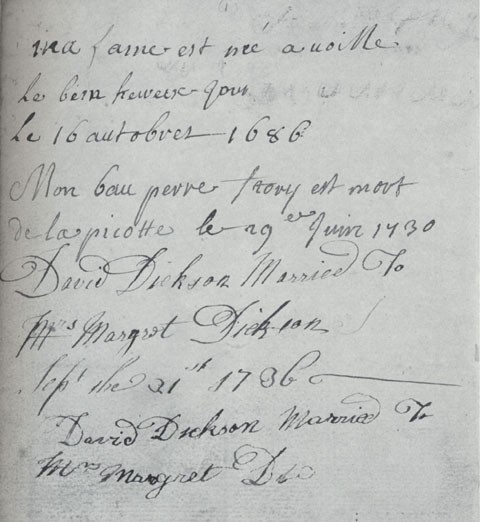 ma fame est né a voille
le bein heureux Jour
Le 16 autobret 1686
Mon bau perre est mort
de la picotte le 29er Juin 1730
David Dickson Married To
Mrs Margret Dickson
Sept the 21st 1736
David Dickson Married To
Mrs Margret